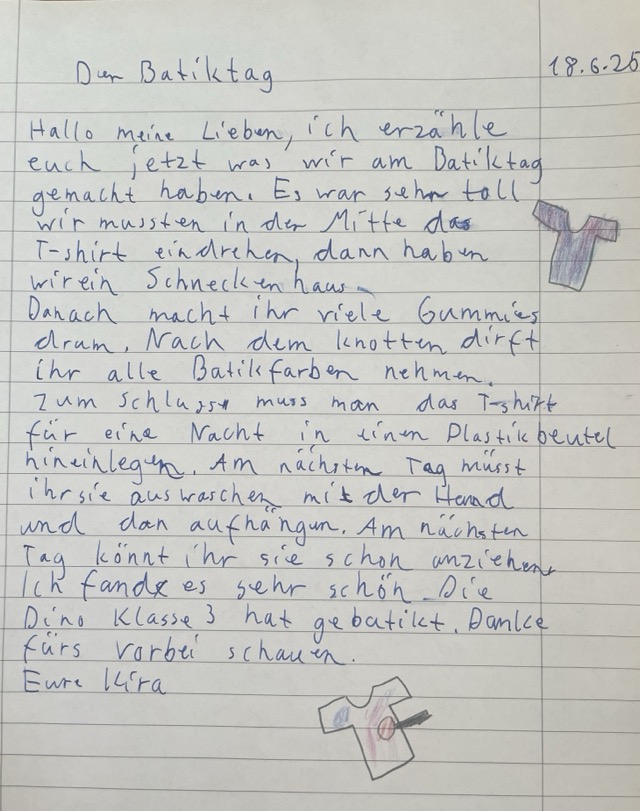 Der Batiktag
18.6.25
Hallo meine Lieben, ich erzähle
euch jetzt was wir am Batiktag
gemacht haben. Es war sehr toll
wir mussten in der Mitte das
T-shirt eindrehen, dann haben
wir ein Schnecken haus.
Danach macht ihr viele Gummies
drum. Nach dem knotten dirft
ihr alle Batikfarben nehmen.
Zum schluss muss man das T-shirt
für eine Nacht in einen Plastikbeutel
hineinlegen. Am nächsten Tag müsst
ihr sie auswaschen mit der Hand
und dan aufhängen. Am nächsten
Tag könnt ihr sie schon anziehen
Ich fand es sehr schön. Die
Dino Klasse 3 hat gebatikt. Danke
fürs vorbei schauen.
Eure Kira